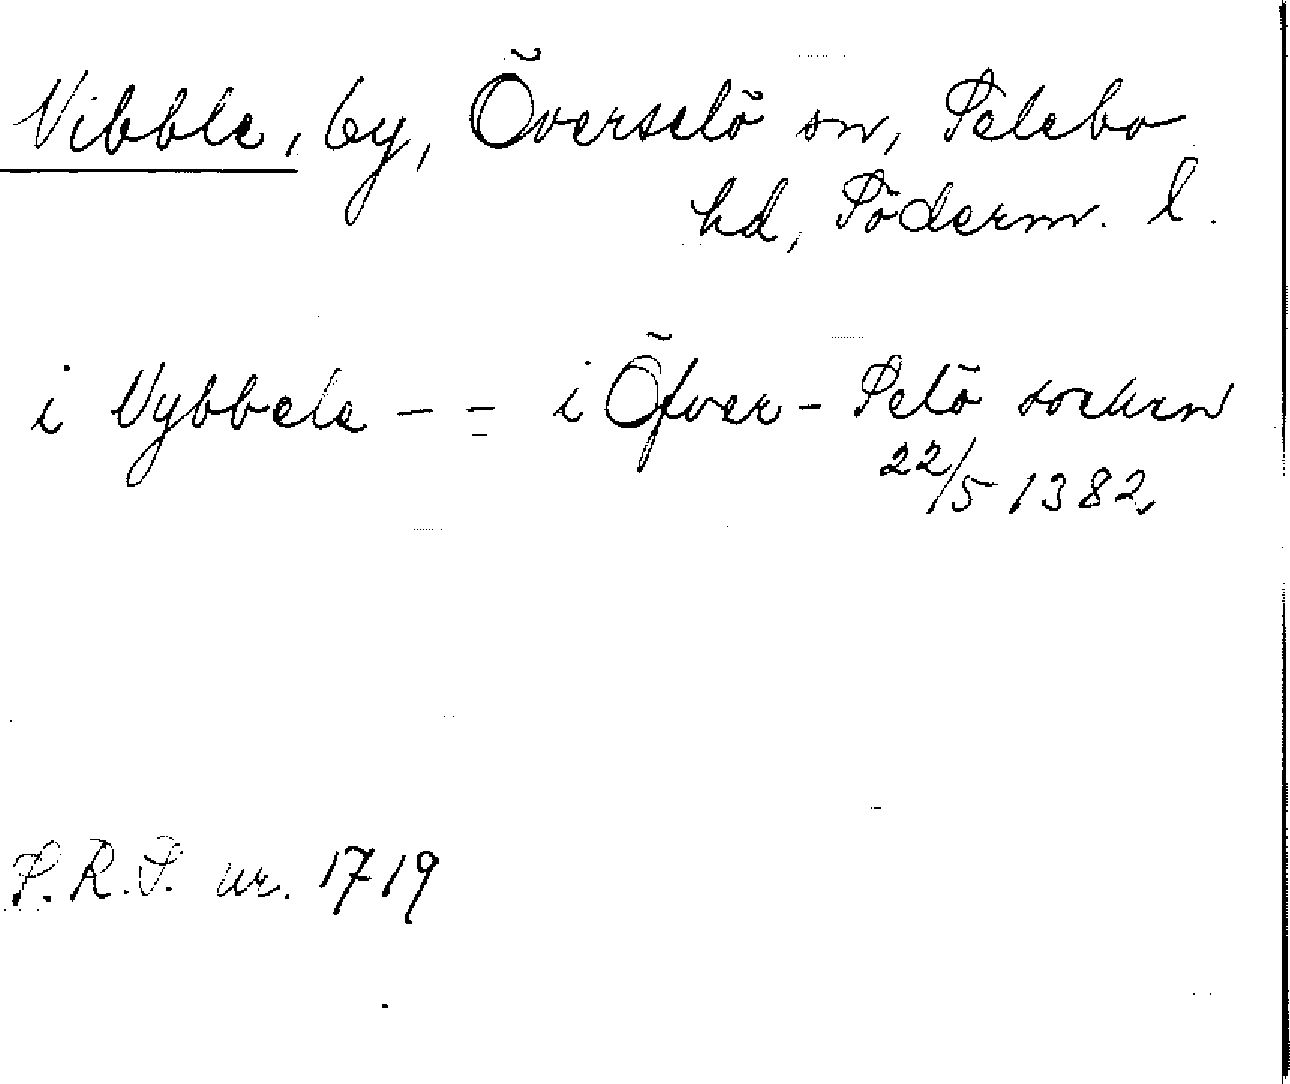 Vibble, by, Överselö sn, Selebo
hd, Söderm. l.
i Vybbele - - i Öfver-Selö socken
22/5 1382
S.R.P. nr. 1719